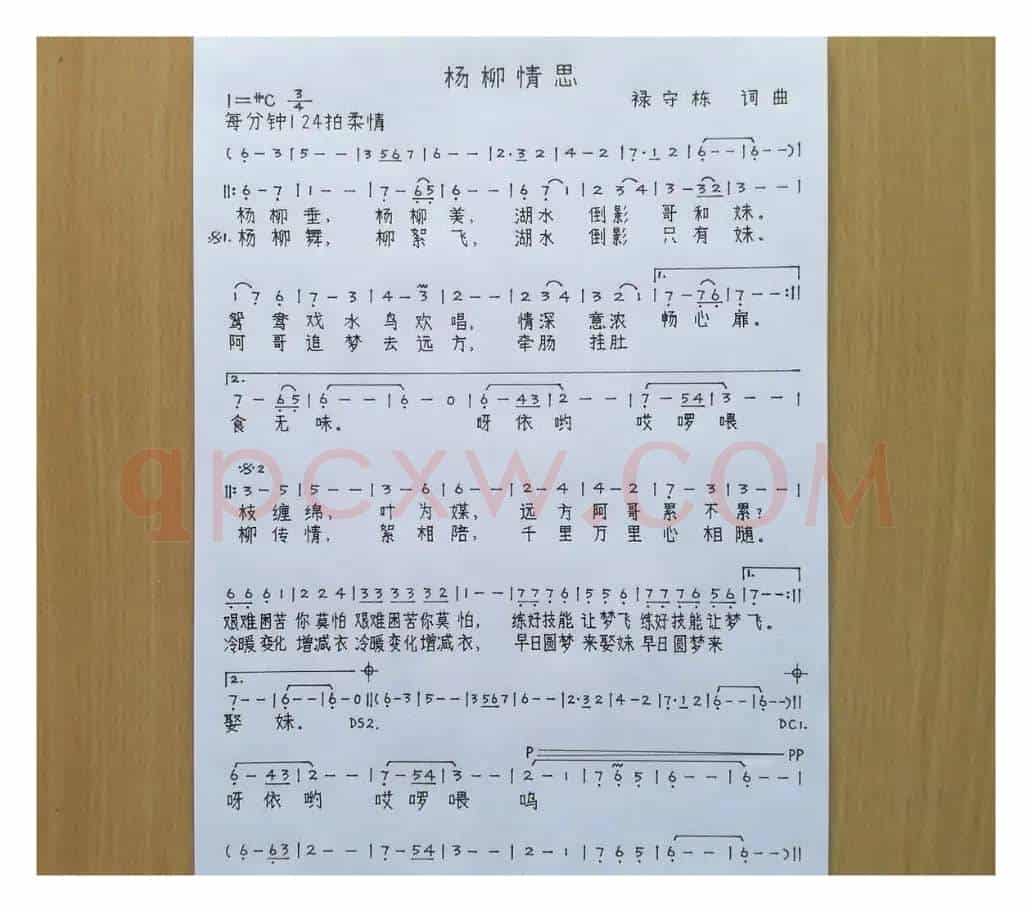 杨柳情思
1=#C 3/4 禄守栋 词曲
每分钟124拍柔情
(6-3|5--|3567|6--|2·32|4-2|7·12|6--|6--)|
||:6-7|1--|7-65|6--|671|234|3-32|3--|
杨柳垂, 杨柳美, 湖水 倒影 哥和妹。
𝄋1. 杨柳舞, 柳絮飞, 湖水 倒影 只有妹。
1.
176|7-3|4-3|2--|234|321|7-76|7--:||
鸳鸯戏水鸟欢唱, 情深 意浓 畅心扉。
阿哥追梦去远方, 牵肠 挂肚
2.
7-65|6--|6-0|6-43|2--|7-54|3--|
食无味。 呀依哟 哎啰喂
𝄋2
||:3-5|5--|3-6|6--|2-4|4-2|7-3|3--|
枝缠绵, 叶为媒, 远方阿哥累不累?
柳传情, 絮相陪, 千里万里心相随。
1.
6661|224|333332|1--|7776|556|777656|7--:||
艰难困苦 你莫怕 艰难困苦你莫怕, 练好技能 让梦飞 练好技能让梦飞。
冷暖变化 增减衣 冷暖变化增减衣, 早日圆梦 来娶妹 早日圆梦来
2.
7--|6--|6-0||(6-3|5--|3567|6--|2·32|4-2|7·12|6--|6--)||
娶妹。 DS2. DC1.
P PP
6-43|2--|7-54|3--|2-1|765|6--|6--|
呀依哟 哎啰喂 呜
(6-63|2--|7-54|3--|2-1|765|6--|6--)||
qpcxw.COM